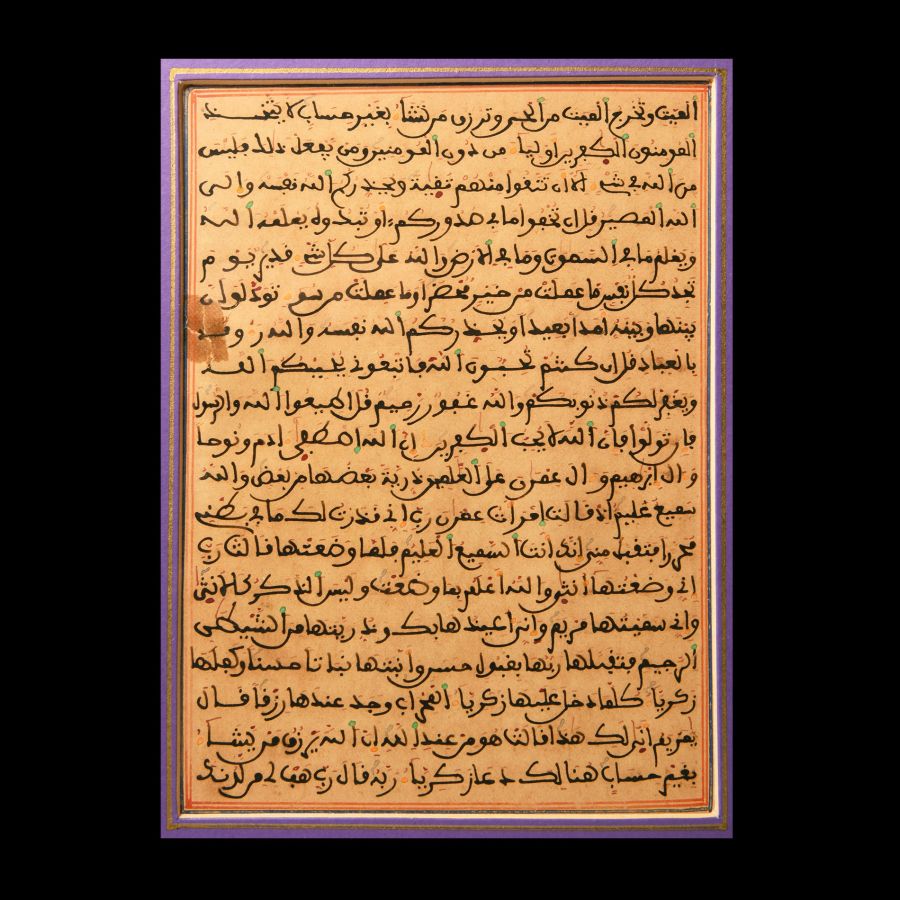 الميت وتخرج الميت من الحي وترزق من تشاء بغير حساب لا يتخذ
المومنون الكفرين اولياء من دون المومنين ومن يفعل ذلك فليس
من الله في شيء الا ان تتقوا منهم تقية ويحذركم الله نفسه والى
الله المصير قل ان تخفوا ما في صدوركم او تبدوه يعلمه الله
ويعلم ما في السموت وما في الارض والله على كل شيء قدير يوم
تجد كل نفس ما عملت من خير محضرا وما عملت من سوء تود لو ان
بينها وبينه امدا بعيدا ويحذركم الله نفسه والله رءوف
بالعباد قل ان كنتم تحبون الله فاتبعوني يحببكم الله
ويغفر لكم ذنوبكم والله غفور رحيم قل اطيعوا الله والرسول
فان تولوا فان الله لا يحب الكفرين ان الله اصطفى ادم ونوحا
وال ابرهيم وال عمرن على العلمين ذرية بعضها من بعض والله
سميع عليم اذ قالت امرات عمرن رب اني نذرت لك ما في بطني
محررا فتقبل مني انك انت السميع العليم فلما وضعتها قالت رب
اني وضعتها انثى والله اعلم بما وضعت وليس الذكر كالانثى
واني سميتها مريم واني اعيذها بك وذريتها من الشيطن
الرجيم فتقبلها ربها بقبول حسن وانبتها نباتا حسنا وكفلها
زكرياء كلما دخل عليها زكرياء المحراب وجد عندها رزقا قال
يمريم انى لك هذا قالت هو من عند الله ان الله يرزق من يشاء
بغير حساب هنالك دعا زكرياء ربه قال رب هب لي من لدنك